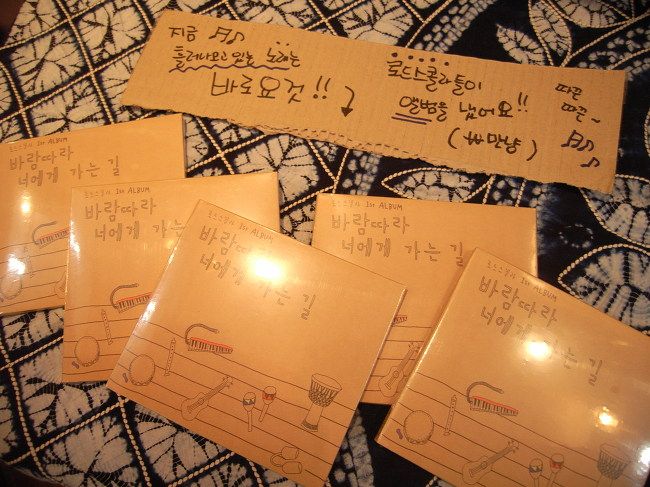 지금 ♬♪
흘러나오고 있는 노래는
바로요것!!
로드스꼴라들이
앨범을 냈어요!!
(₩만냥)
따끈
따끈~
♬♪
로드스꼴라 1st ALBUM
바람따라
너에게 가는 길
로드스꼴라 1st ALBUM
바람따라
너에게 가는 길
로드스꼴라 1st ALBUM
바람따라
너에게 가는 길
로드스꼴라 1st ALBUM
바람따라
너에게 가는 길
로드스꼴라 1st ALBUM
바람따라
너에게 가는 길